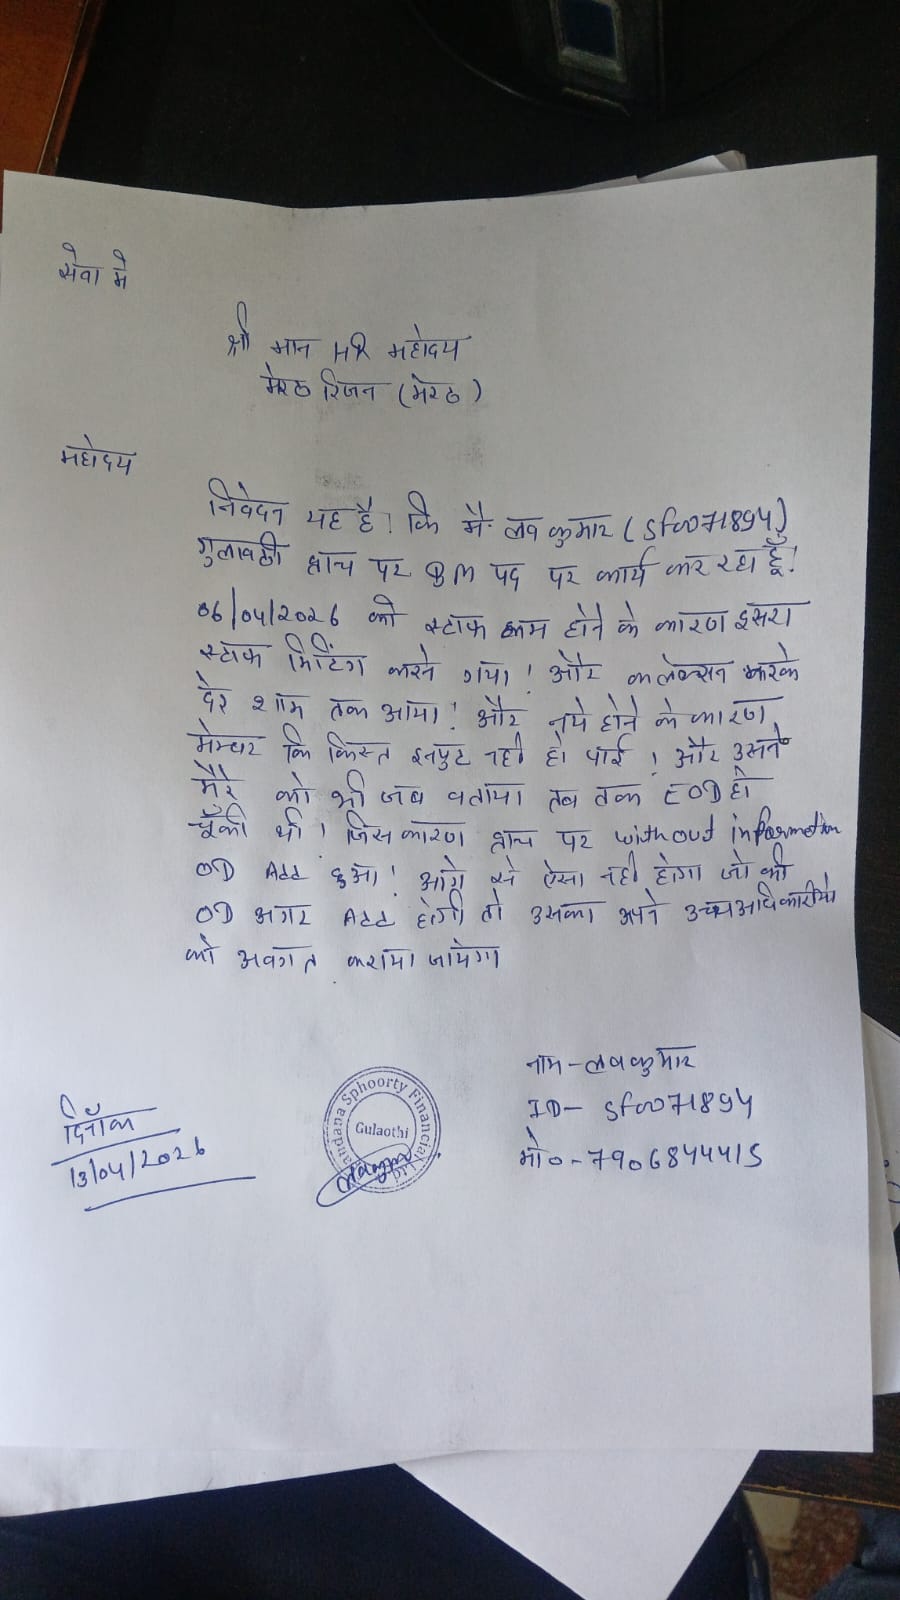 सेवा मे
श्री मान HR महोदय
मेरठ रिजन (मेरठ)
महोदय
निवेदन यह है! कि मै लव कुमार (Sf0071894)
गुलावठी ब्रांच पर BM पद पर कार्य कर रहा हूँ!
06/04/2026 को स्टाफ कम होने के कारण दुसरा
स्टाफ मिटिंग करने गया! और कलेक्सन करके
देर शाम तक आया! और नये होने के कारण
मेम्बर कि किस्त इनपुट नही हो पाई! और उसने
मेरे को भी जब बताया तब तक EOD हो
चूँकी थी! जिस कारण ब्रांच पर without information
OD Add हुआ! आगे से ऐसा नही होगा जो की
OD अगर Add होगी तो उसका अपने उच्चअधिकारीयो
को अवगत कराया जायेगा
नाम - लवकुमार
ID- Sf0071894
मो० - 7906844415
दिनाँक
13/04/2026
andana Sphoorty Financial
Gulaothi